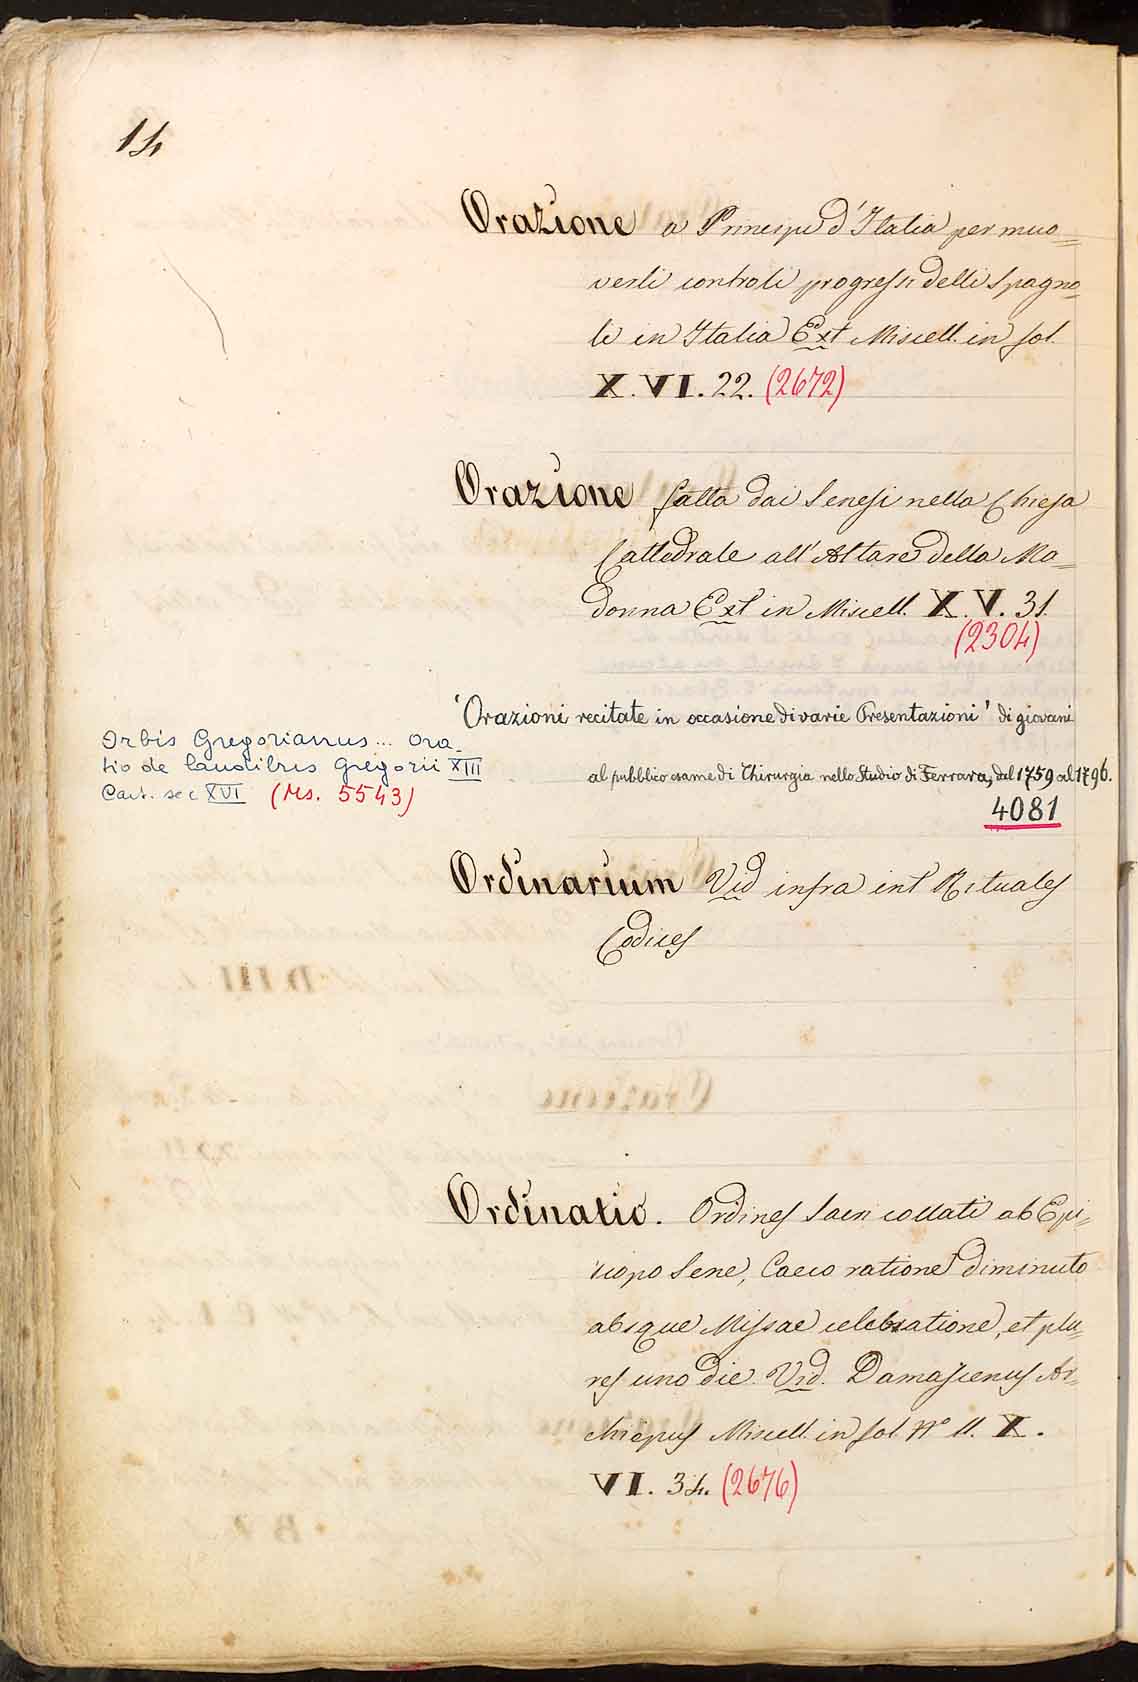 14
Orazione a Principi d'Italia per muo=
verli contro li progressi delli Spagno=
li in Italia Ext Miscell. in fol.
X. VI. 22. (2672)
Orazione fatta dai Senesi nella Chiesa
Cattedrale all'Altare della Ma=
donna Ext in Miscell. X. V. 31.
(2304)
"Orazioni recitate in occasione di varie Presentazioni" di giovani
al pubblico esame di Chirurgia nello Studio di Ferrara, dal 1759 al 1796.
4081
Orbis Gregorianus... Ora_
tio de laudibus Gregorii XIII
Cart. sec XVI (Ms. 5543)
Ordinarium Vid infra int Rituales
Codices
Ordinatio. Ordines Sacri collati ab Epi=
scopo Sene, Caeco ratione diminuto
absque Missae celebratione, et plu=
res uno die. Vid. Damascenus Ar=
chiepus Miscell. in fol. N° 11. X.
VI. 34. (2676)